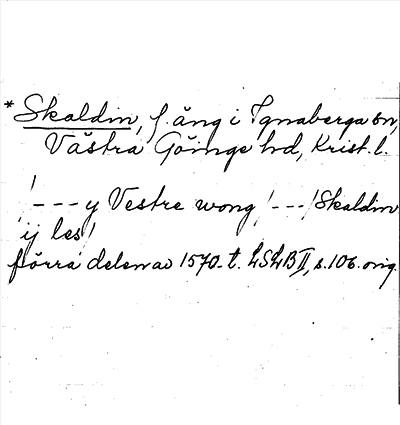 * Skaldin, f. äng i Ignaberga sn,
Västra Göinge hd, Krist. l.
/---y Vestre wong /---/ Skaldin
ij les/
förra delen av 1570-t. LSLB II, s. 106. orig.